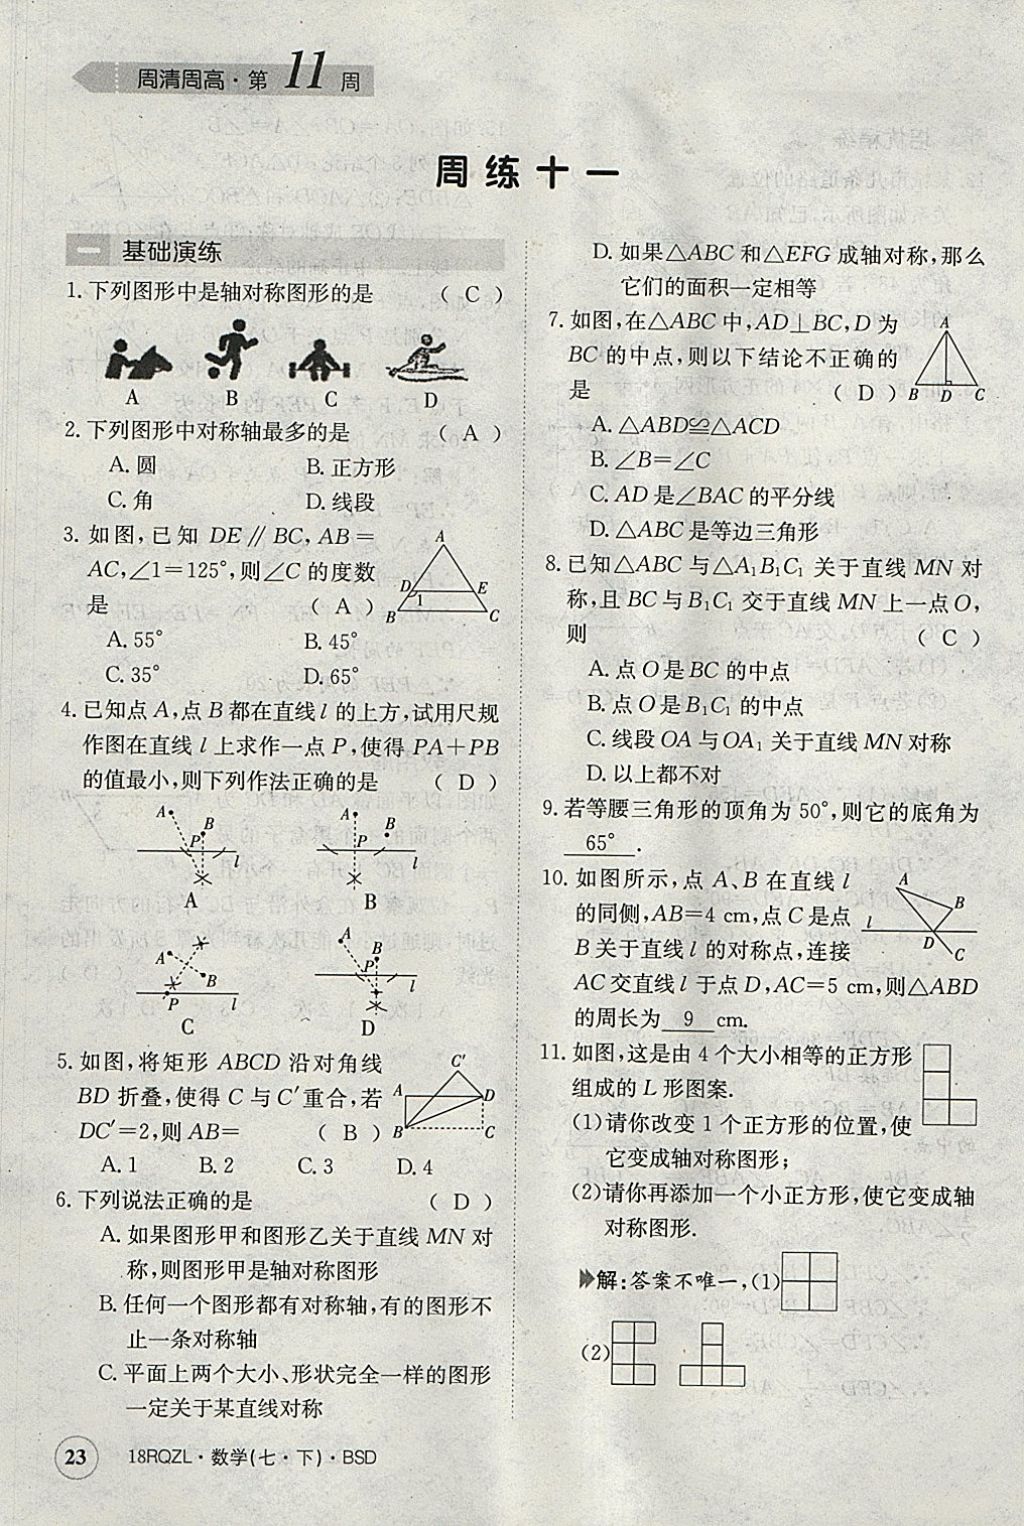 周清周高·第11周
周练十一
一 基础演练
1.下列图形中是轴对称图形的是 ( C )
A B C D
2.下列图形中对称轴最多的是 ( A )
A.圆 B.正方形
C.角 D.线段
3.如图,已知 DE∥BC,AB=
AC,∠1=125°,则∠C 的度数
是 ( A )
A D E 1 B C
A.55° B.45°
C.35° D.65°
4.已知点 A,点 B 都在直线 l 的上方,试用尺规
作图在直线 l 上求作一点 P,使得 PA+PB
的值最小,则下列作法正确的是 ( D )
A B P l
A
A B l
B
A B P l
C
A B P l
D
5.如图,将矩形 ABCD 沿对角线
BD 折叠,使得 C 与 C′重合,若
DC′=2,则 AB= ( B )
C′ A D B C
A.1 B.2 C.3 D.4
6.下列说法正确的是 ( D )
A.如果图形甲和图形乙关于直线 MN 对
称,则图形甲是轴对称图形
B.任何一个图形都有对称轴,有的图形不
止一条对称轴
C.平面上两个大小、形状完全一样的图形
一定关于某直线对称
D.如果△ABC 和△EFG 成轴对称,那么
它们的面积一定相等
7.如图,在△ABC 中,AD⊥BC,D 为
BC 的中点,则以下结论不正确的
是 ( D )
A B D C
A.△ABD≌△ACD
B.∠B=∠C
C.AD 是∠BAC 的平分线
D.△ABC 是等边三角形
8.已知△ABC 与△A₁B₁C₁ 关于直线 MN 对
称,且 BC 与 B₁C₁ 交于直线 MN 上一点 O,
则 ( C )
A.点 O 是 BC 的中点
B.点 O 是 B₁C₁ 的中点
C.线段 OA 与 OA₁ 关于直线 MN 对称
D.以上都不对
9.若等腰三角形的顶角为 50°,则它的底角为
65° .
10.如图所示,点 A、B 在直线 l
的同侧,AB=4 cm,点 C 是点
B 关于直线 l 的对称点,连接
AC 交直线 l 于点 D,AC=5 cm,则△ABD
的周长为 9 cm.
A B l D C
11.如图,这是由 4 个大小相等的正方形
组成的 L 形图案.
(1)请你改变 1 个正方形的位置,使
它变成轴对称图形;
(2)请你再添加一个小正方形,使它变成轴
对称图形.
解:答案不唯一,(1)
(2)
23 18RQZL·数学(七·下)·BSD